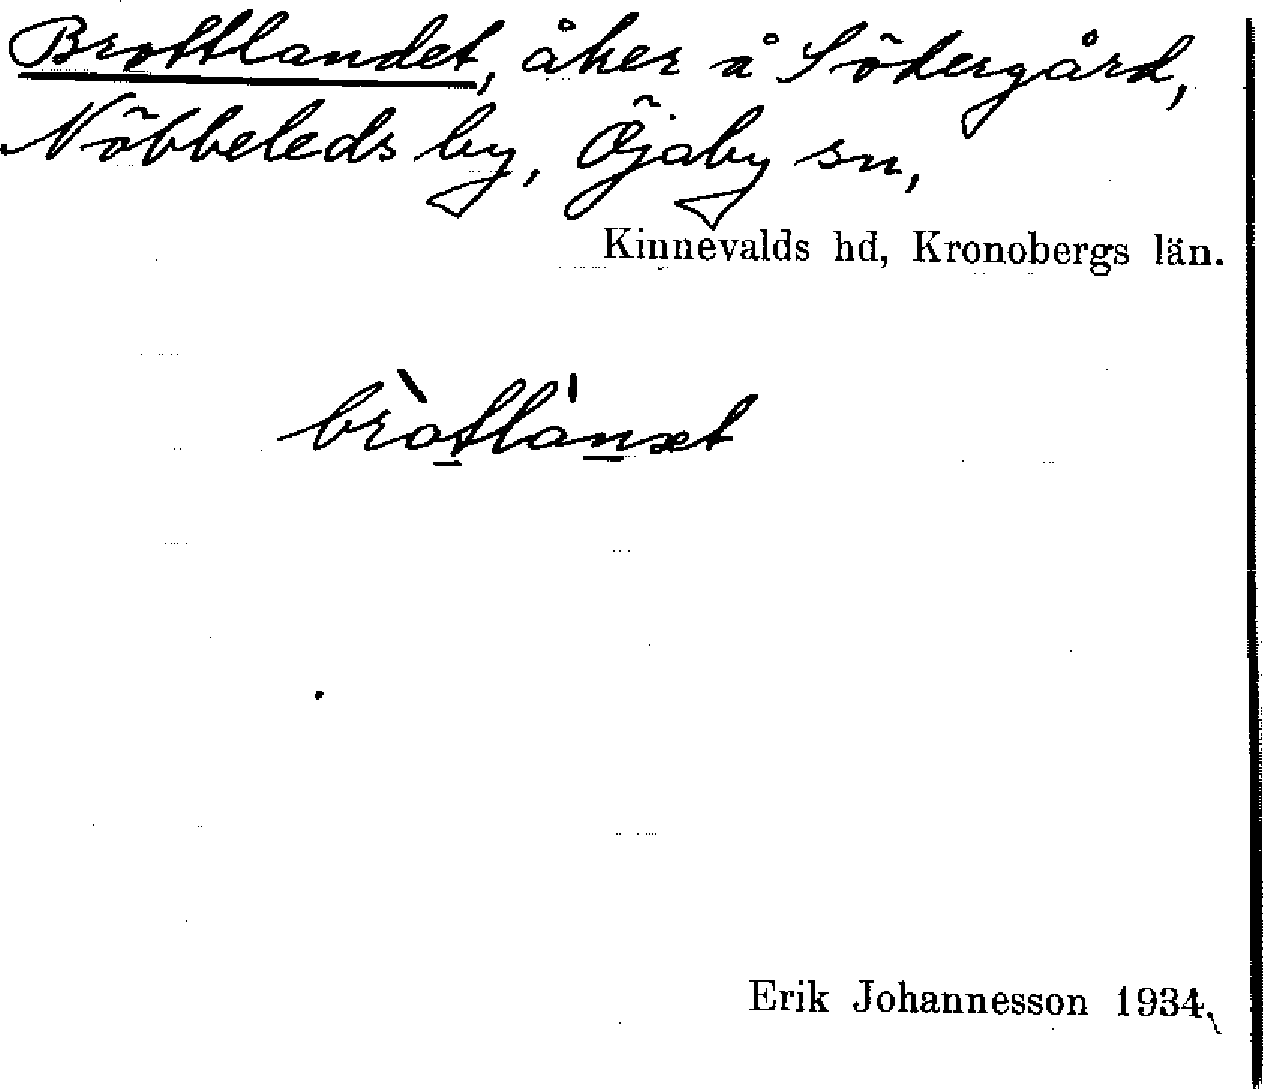 Brottlandet, åker å Södergård,
Nöbbeleds by, Öjaby sn,
Kinnevalds hd, Kronobergs län.
bròtlánæt
Erik Johannesson 1934.